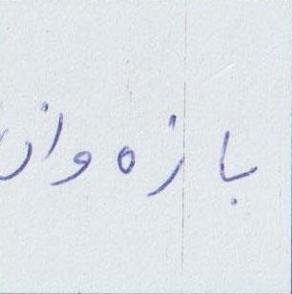 بازه وان